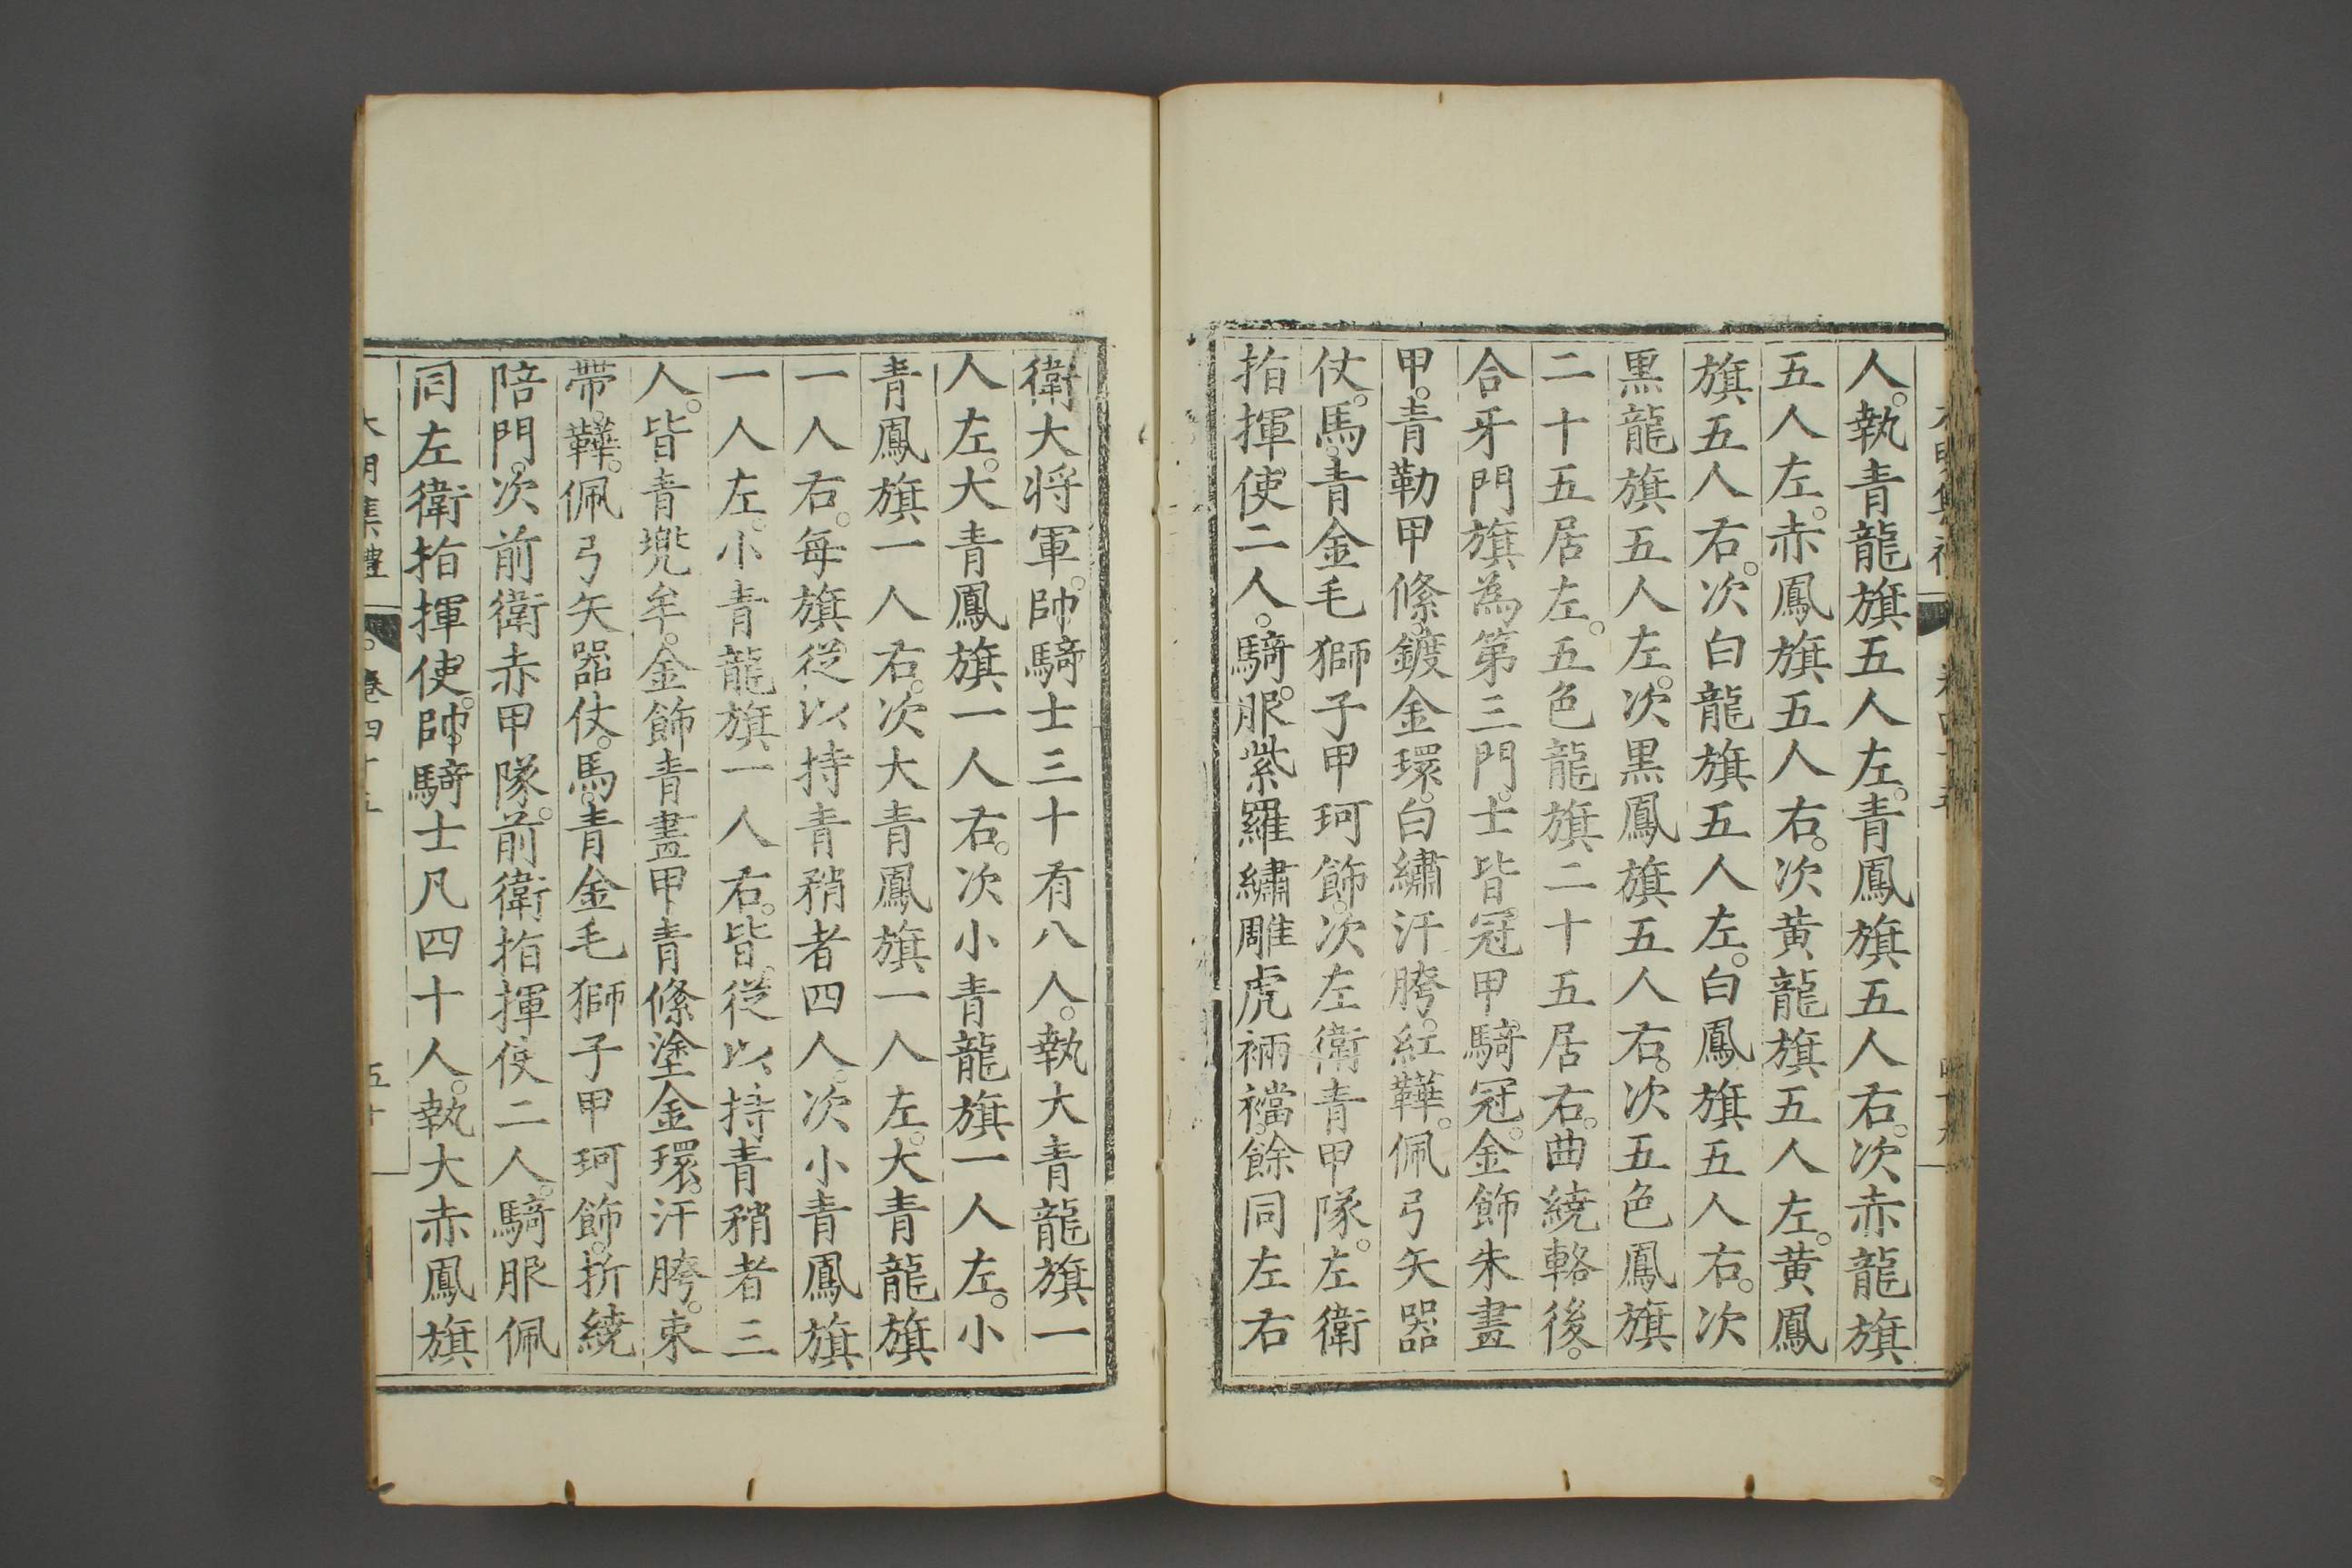 人。執青龍旗五人左。青鳳旗五人右。次赤龍旗
五人左。赤鳳旗五人右。次黄龍旗五人左。黄鳳
旗五人右。次白龍旗五人左。白鳳旗五人右。次
黒龍旗五人左。次黒鳳旗五人右。次五色鳳旗
二十五居左。五色龍旗二十五居右。曲繞輅後。
合牙門旗為第三門。士皆冠甲騎冠。金飾朱畫
甲。青勒甲絛。鍍金環。白繡汗胯。紅鞾。佩弓矢器
仗。馬。青金毛獅子甲珂飾。次左衛青甲隊。左衛
指揮使二人。騎。服紫羅繡雕虎裲襠。餘同左右
衛大将軍。帥騎士三十有八人。執大青龍旗一
人左。大青鳳旗一人右。次小青龍旗一人左。小
青鳳旗一人右。次大青鳳旗一人左。大青龍旗
一人右。每旗從以持青矟者四人。次小青鳳旗
一人左。小青龍旗一人右。皆從以持青矟者三
人。皆青兠牟。金飾青畫甲青絛塗金環。汗胯。束
帶。鞾。佩弓矢器仗。馬。青金毛獅子甲珂飾。折繞
陪門。次前衛赤甲隊。前衛指揮使二人。騎服佩
同左衛指揮使。帥騎士凡四十人。執大赤鳳旗
大明集禮 卷四十五 五十